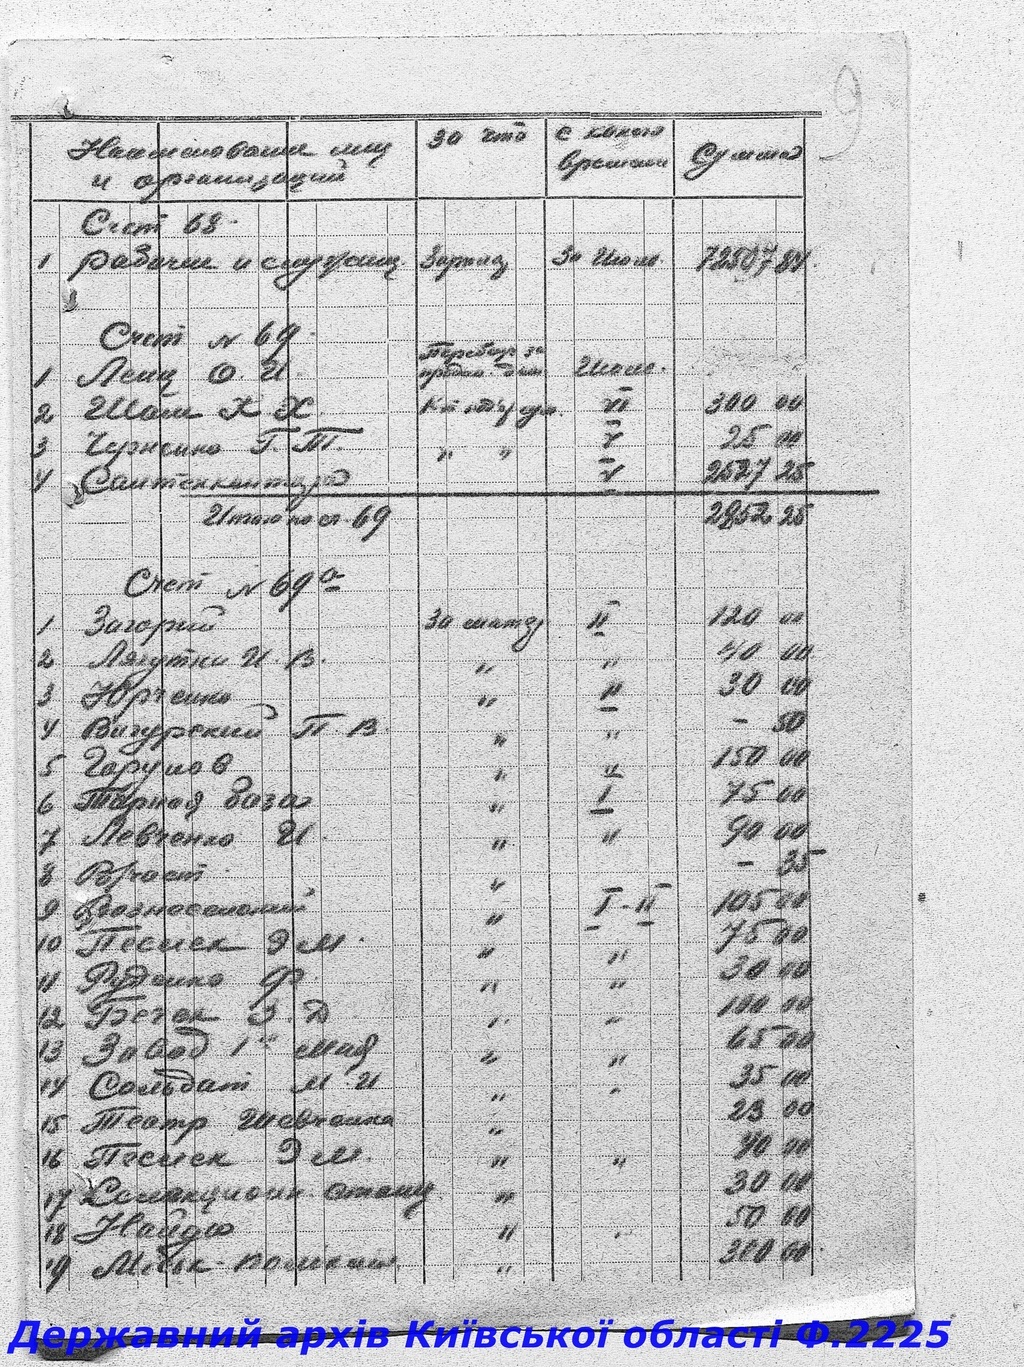 9
Наименование лиц и организаций | За что | С какого времени | Сумма
Счет 68
1 Рабочие и служащ. Зарплат За Июль. 72507 84
Счет № 69
1 Лещ О. И. Июль.
2 Шам Х Х. VI 300 00
3 Черненко Г. Т. " " V 25 00
4 Сантехконтора V 2527 25
Итого по сч. 69 2852 25
Счет № 69а
1 Загорий За матер II 120 00
2 Лягутка И. В. " " 40 00
3 Юрченко " " 30 00
4 Вигурский П. В. " " – 50
5 Горунов " " 150 00
6 Тарная база " I 75 00
7 Левченко И. " " 90 00
8 " – 35
9 Вознесенский " I - II 105 00
10 Песиск Э М. " " 75 00
11 Руденко Ф. " " 30 00
12 З. Д " " 100 00
13 Завод 1го мая " " 65 00
14 Сольдат М. И " " 35 00
15 Театр Шевченка " 23 00
16 Песиск Э М. " " 40 00
17 " 30 00
18 Найда " " 50 00
19 " 300 00
Державний архів Київської області Ф.2225